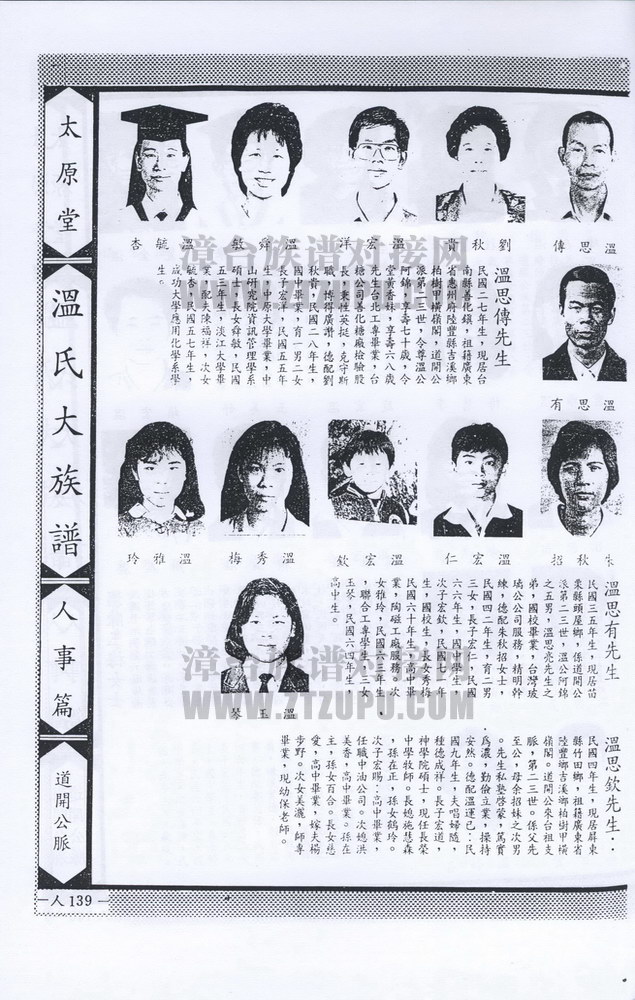 太原堂
溫氏大族譜
人事篇
道開公脈
人 139
溫思傳
劉秋貴
溫宏洋
溫舜敏
溫毓杏
溫思傳先生
民國二七年生，現居台
南縣善化鎮，祖籍廣東
省惠州府陸豐縣吉溪鄉
柏樹甲橫嶺閣，道開公
派第二三世，令尊溫公
阿錦，享壽七十歲，令
堂黃香妹，享壽六八歲
。先生台北工專畢業，台
糖公司善化糖廠檢驗股
長，秉性英挺，克守斯
職，博得廣讚，德配劉
秋貴，民國二八年生，
國中畢業，育一男二女
長子宏洋，民國五五年
生，中原大學畢業，中
山研究院資訊管理學系
碩士，長女舜敏，民國
五三年生，淡江大學畢
業，配夫陳福祥，次女
毓杏，民國五七年生，
成功大學應用化學系學
生。
溫思有
朱秋招
溫宏仁
溫宏欽
溫秀梅
溫雅玲
溫玉琴
溫思有先生
民國三五年生，現居苗
栗縣頭屋鄉，係道開公
派第二三世，溫公阿錦
之五男，溫思亮先生之
弟，國校畢業，台灣玻
璃公司服務，精明幹
練，德配朱秋招女士，
民國四二年生，育二男
三女，長子宏仁，民國
六六年生，國中學生，
次子宏欽，民國七一年
生，國校生，長女秀梅
民國六十年生，高中畢
業，陶磁工廠服務，次
女雅玲，民國六三年生
，聯合工專學生，三女
玉琴，民國六四年生，
高中生。
溫思欽先生：
民國四年生，現居屏東
縣竹田鄉，祖籍廣東省
陸豐鄉吉溪鄉柏樹甲橫
嶺閣。道開公來台祖支
脈，第二三世。係父先
至公，母余招妹之次男
。先生私塾啓蒙，篤實
為農，勤儉立業，操持
安然。德配溫運己：民
國九年生，夫唱婦隨，
種德成祥。長子宏道，
神學院碩士，現任長榮
中學牧師。長媳施慧森
，孫在正，孫女鶴玲。
次子宏賜：高中畢業，
任職中油公司。次媳洪
美香，高中畢業。孫在
主，孫女百合。長女慈
愛，高中畢業，嫁夫楊
步野。次女美灑，師專
畢業，現幼保老師。
漳台族谱对接网
WWW.ZTZUPU.COM
漳台族谱对接网
WWW.ZTZUPU.COM